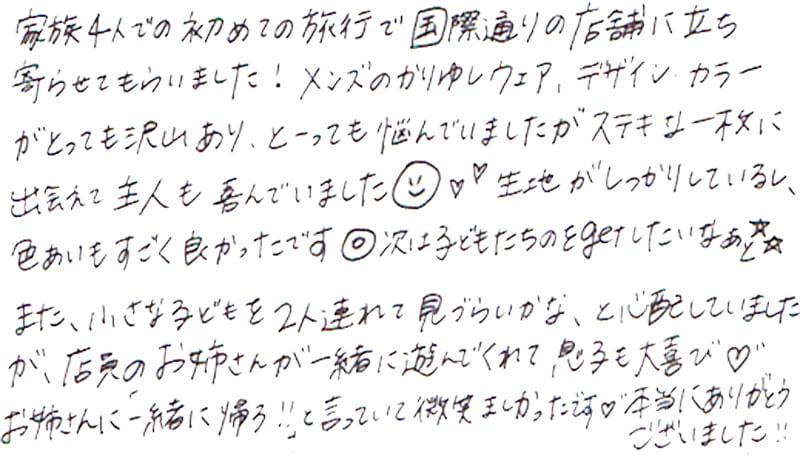 家族4人での初めての旅行で国際通りの店舗に立ち
寄らせてもらいました！メンズのかりゆしウェア、デザイン・カラー
がとっても沢山あり、とーっても悩んでいましたがステキな一枚に
出会えて主人も喜んでいました☺♡♡生地がしっかりしているし、
色あいもすごく良かったです◎次は子どもたちのをgetしたいなぁと☆☆
また、小さな子どもを2人連れて見づらいかな、と心配していました
が、店員のお姉さんが一緒に遊んでくれて息子も大喜び♡
お姉さんに「一緒に帰ろ!!」と言っていて微笑ましかったです♡本当にありがとう
ございました!!